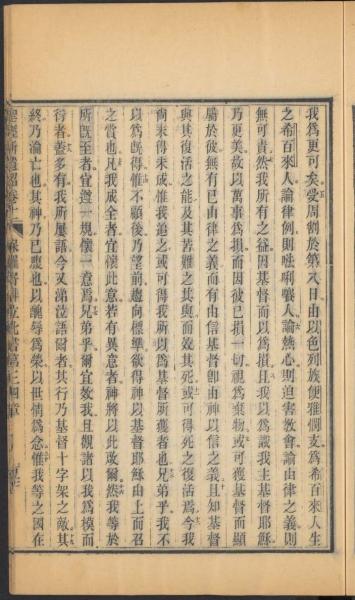 我爲更可矣受周割於第八日由以色列族便雅憫支爲希百來人生
之希百來人論律例則𠵽唎嚷人論熱心則迫害教會論由律之義則
無可責然我所有之益因基督而以爲損且我以爲識我主基督耶穌
乃更美故以萬事爲損而因彼已損一切視爲棄物或可獲基督而顯
屬於彼無有已由律之義而有由信基督即由神以信之義且知基督
與其復活之能及其苦難之共與而效其死或可得死之復活爲今我
尚未得未成惟我追之或可得我所以爲基督所獲者也兄弟乎我不
以爲旣得惟不顧後乃望前趨向標準欲得神以基督耶穌由上而召
之賞也凡我成全者宜懷此意若有異意者神將以此啟爾然我等於
所旣至者宜遵一規懷一意焉兄弟乎爾宜效我且觀諸以我爲模而
行者葢多有我所屢語今又涕泣語爾者其行乃基督十字架之敵其
終乃淪亡也其神乃已腹也以醜辱爲榮以世情爲念惟我等之國在